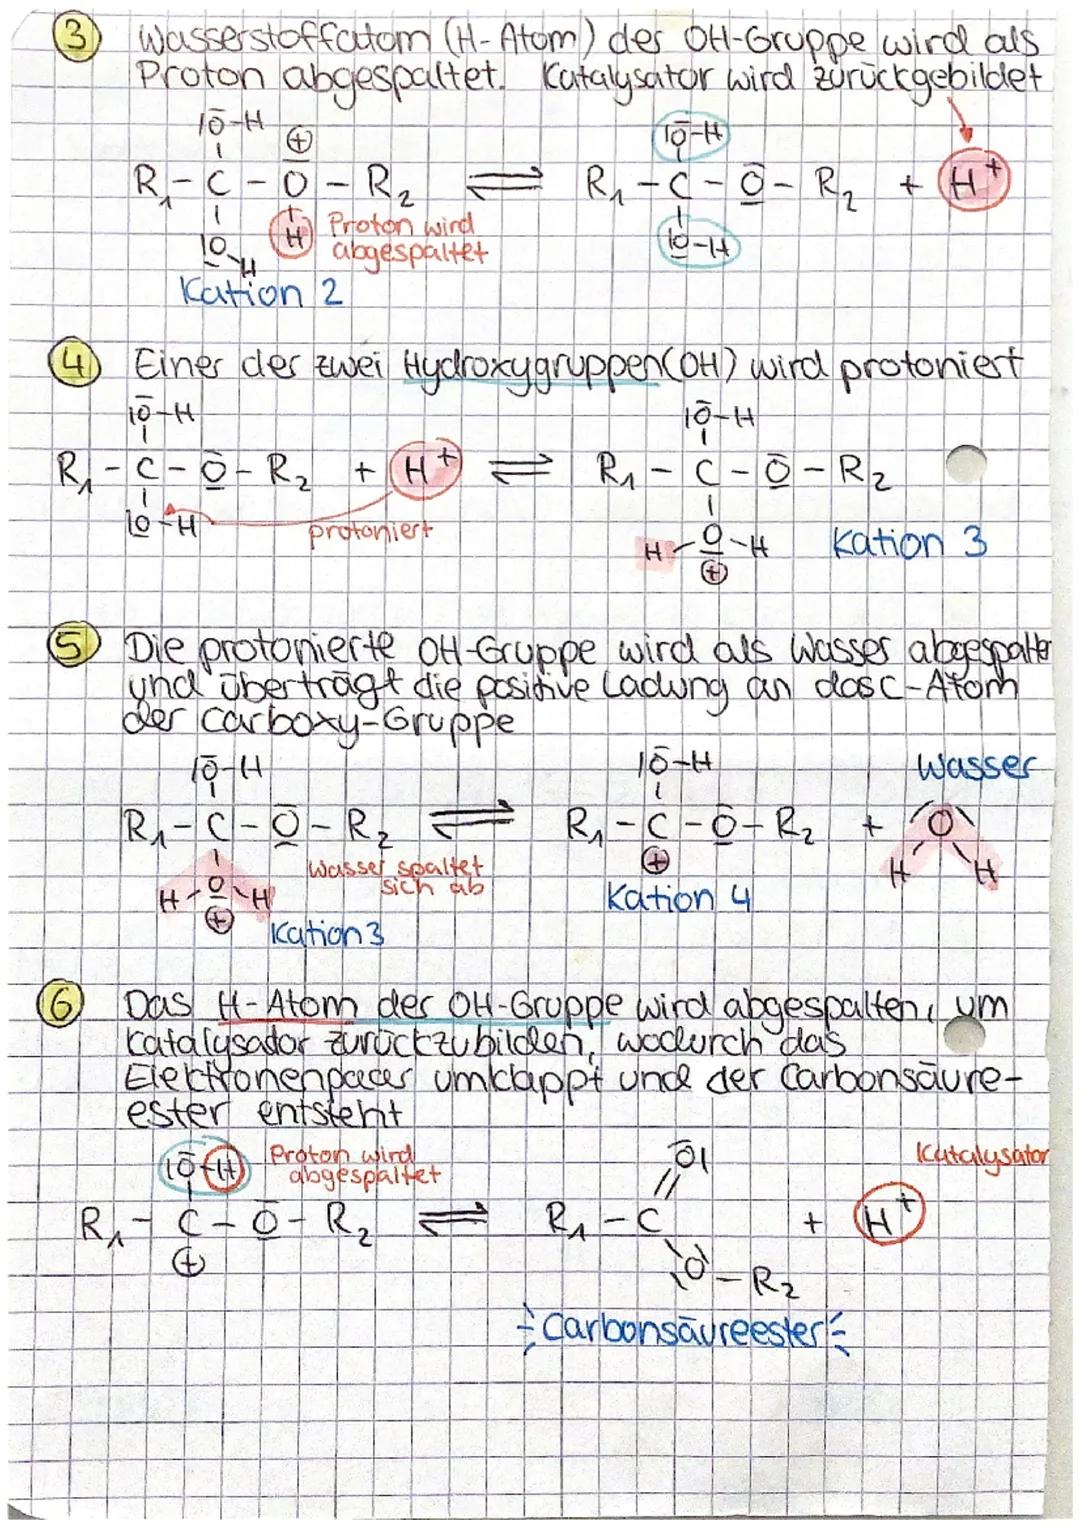 3 Wasserstoffatom (H-Atom) der OH-Gruppe wird als
Proton abgespaltet. Katalysator wird zurückgebildet
|O̅-H ⊕ |O̅-H
R₁-C-O-R₂ ⇌ R₁-C-O̅-R₂ + H⁺
|O-H H Proton wird |O-H
abgespaltet
Kation 2
4 Einer der zwei Hydroxygruppen(OH) wird protoniert
|O̅-H |O̅-H
R₁-C-O̅-R₂ + H⁺ ⇌ R₁-C-O̅-R₂
|O-H protoniert H-O-H Kation 3
⊕
5 Die protonierte OH-Gruppe wird als Wasser abgespalten
und überträgt die positive Ladung an das C-Atom
der Carboxy-Gruppe
|O̅-H |O̅-H Wasser
R₁-C-O̅-R₂ ⇌ R₁-C-O̅-R₂ + O
H-O-H Wasser spaltet ⊕ H H
⊕ sich ab Kation 4
Kation 3
6 Das H-Atom der OH-Gruppe wird abgespalten, um
Katalysador zurückzubilden, wodurch das
Elektronenpaar umklappt und der Carbonsäure-
ester entsteht
|O̅-H Proton wird O̅| Katalysator
abgespaltet
R₁-C-O̅-R₂ ⇌ R₁-C + H⁺
⊕ O-R₂
Carbonsäureester